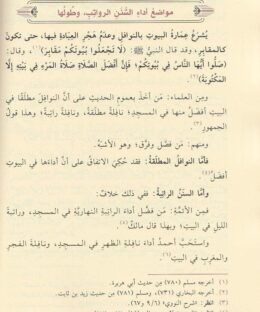 مواضع أداء السُّنَن الرواتِب، وطُولُها
يُشرَعُ عِمَارةُ البيوتِ بالنوافلِ وعدمُ هَجْرِ العِبَادةِ فيها، حتى تكونَ
كالمقابِرِ، وقد قال النبيُّ ﷺ: (لَا تَجْعَلُوا بُيُوتَكُمْ مَقَابِرَ)(١)، وقال:
(صَلُّوا أَيُّهَا النَّاسُ فِي بُيُوتِكُمْ؛ فَإِنَّ أَفْضَلَ الصَّلَاةِ صَلَاةُ المَرْءِ فِي بَيْتِهِ إِلَّا
المَكْتُوبَةَ)(٢)
ومِن العلماءِ: مَن أخَذَ بعمومِ الحديثِ على أنَّ النوافلَ مطلَقًا في
البيتِ أفضَلُ منها في المسجدِ، نافلةً مطلَقةً، وراتبةً؛ وهذا قولُ
الجمهورِ(٣)
ومنهم: مَن فصَّلَ وفرَّق؛ وهو الأشبَهُ.
فأمَّا النوافلُ المطلَقةُ: فقد حُكِيَ الاتفاقُ على أنَّ أداءَها في البيتِ
أفضَلُ
وأمَّا السننُ الراتبةُ: ففي ذلك خلافٌ:
فمِن الأئمَّةِ: مَن فضَّلَ أداءَ الراتبةِ النهاريَّةِ في المسجدِ، وراتبةِ
الليلِ في البيتِ؛ وبهذا قال مالكٌ
واستَحَبَّ أحمدُ أداءَ نافلةِ الظهرِ في المسجدِ، ونافلةِ الفجرِ
والمغربِ في البيتِ
(١) أخرجه مسلم (٧٨٠) من حديث أبي هريرة.
(٢) أخرجه البخاري (٧٣١)، ومسلم (٧٨١) من حديث زيد بن ثابت.
(٣) انظر: «شرح النووي» (٦/ ٩ و٦٧).